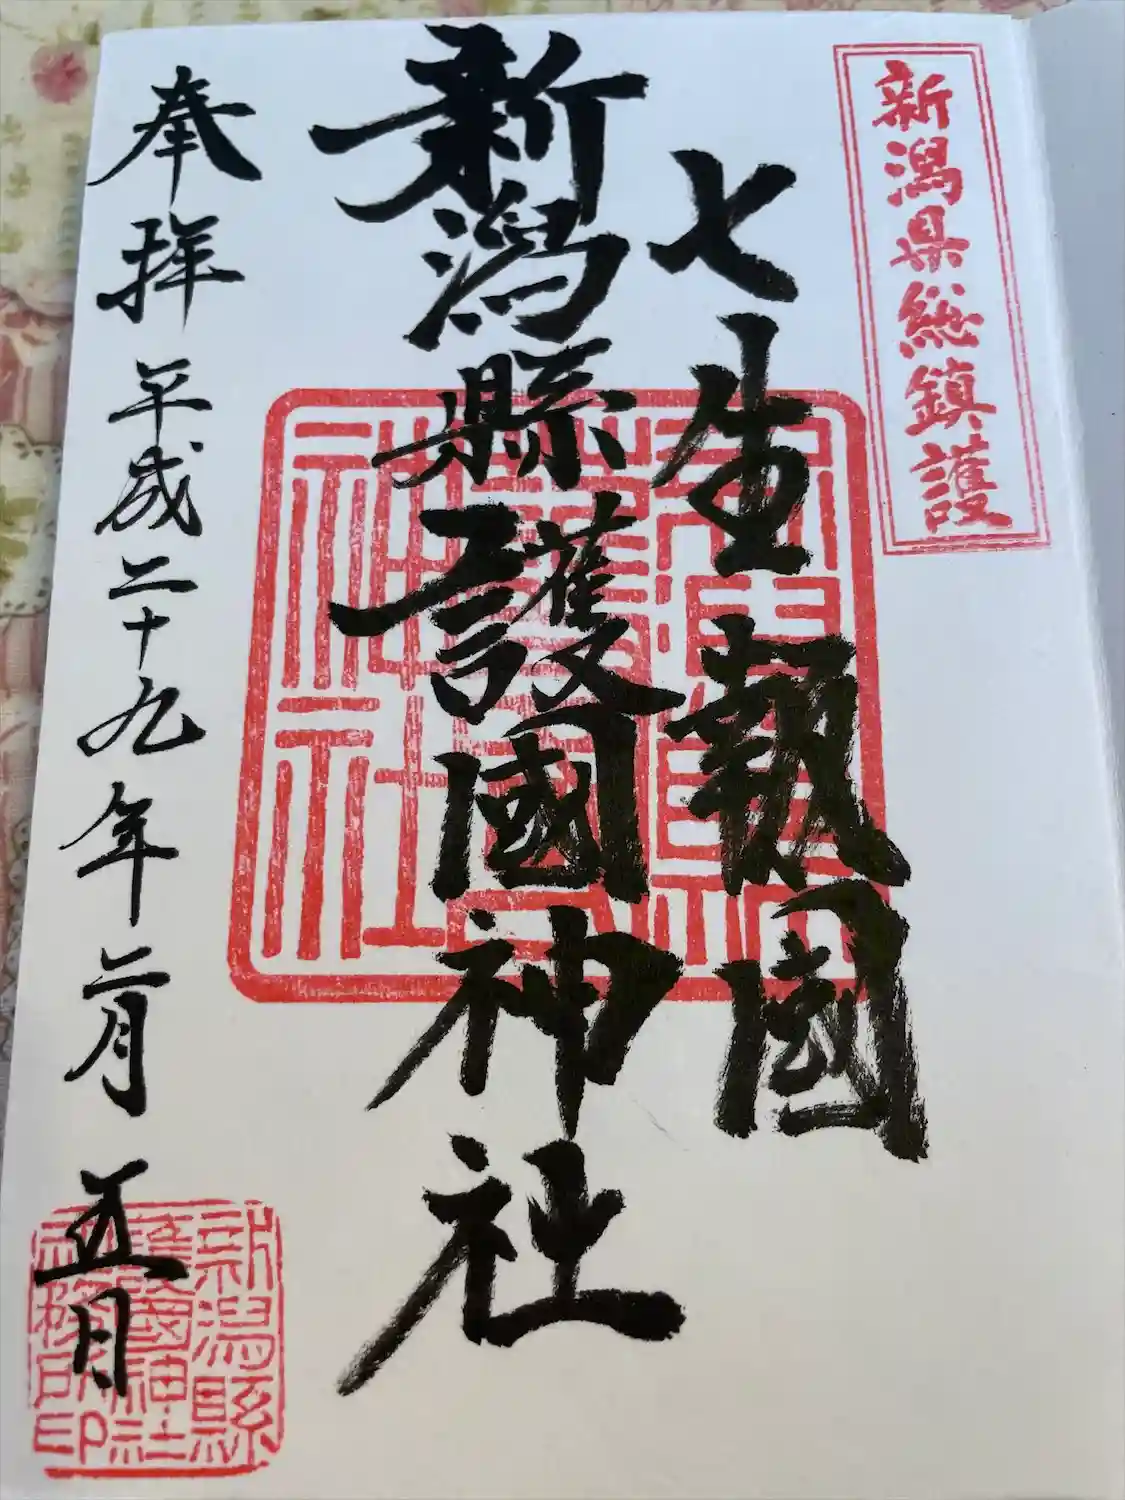 新潟県総鎮護
七生報国
新潟縣護國神社
神社
奉拝 平成二十九年二月五日
新潟縣
護國神社
社務所印